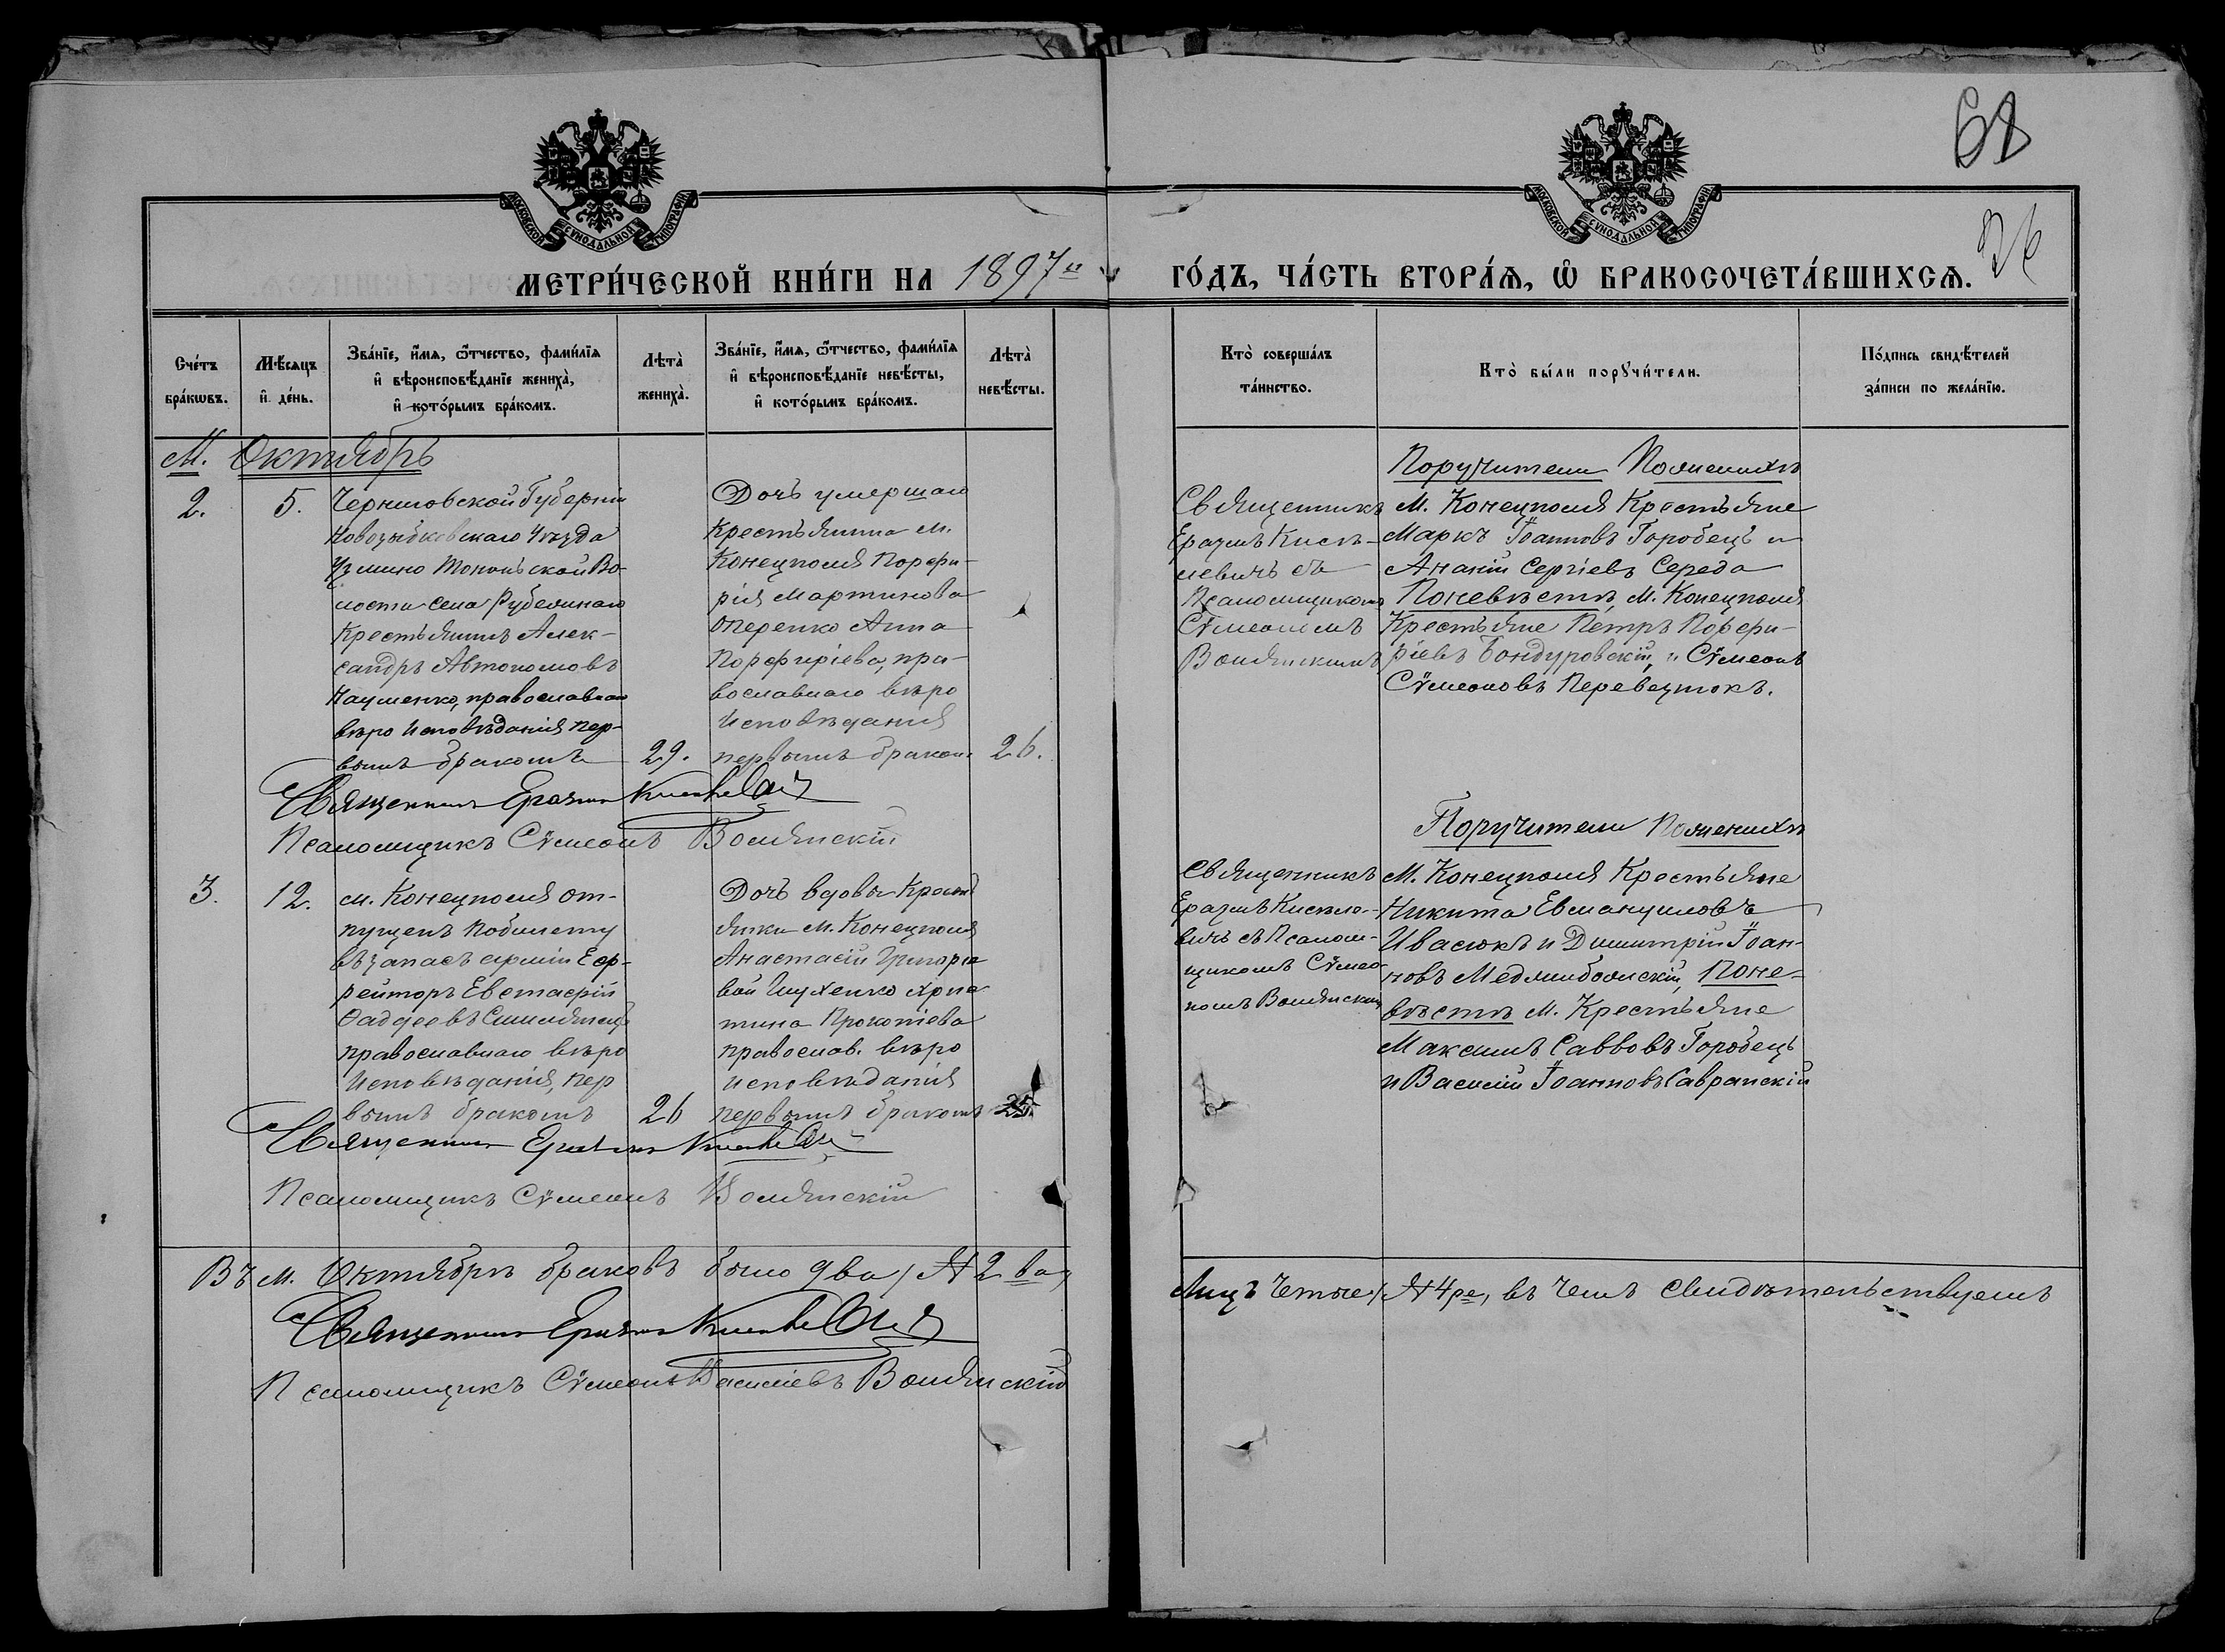 68
26
МЕТРИ́ЧЕСКОЙ КНИ́ГИ НА 1897й
ГО́ДЪ, ЧА́СТЬ ВТОРА́Я, Ѿ БРАКОСОЧЕТА́ВШИХСѦ.
Сче́тъ бра́кѡвъ.
Мѣ́сяцъ и҆ де́нь.
Зва́нїе, и҆́мѧ, ѻ҆́тчество, фами́лїѧ и҆ вѣроисповѣ́данїе жениха̀, и҆ кото́рымъ бра́комъ.
Лѣта̀ жениха̀.
Зва́нїе, и҆́мѧ, ѻ҆́тчество, фами́лїѧ и҆ вѣроисповѣ́данїе невѣ́сты, и҆ кото́рымъ бра́комъ.
Лѣта̀ невѣ́сты.
Кто̀ соверша́лъ та́инство.
Кто̀ бы́ли порꙋчи́тели.
По́дпись свидѣ́телей за́писи по жела́нїю.
М. Октябрь
2.
5.
Черниговской Губерніи
Новозыбковскаго Уѣзда
Во-
лости села
Крестьянинъ Алек-
сандръ Автономовъ
Науменко, православнаго
вѣро Исповѣданія пер-
вымъ бракомъ
29.
Дочь умершаго
Крестьянина м.
Конецполя Порфи-
рія Мартинова
Оперенко Анна
Порфиріева, пра-
вославнаго вѣро
Исповѣданія
первымъ бракомъ
26.
Священникъ
Еразмъ Кисѣ-
левичъ съ
Псаломщикомъ
Сѵмеономъ
Волянскимъ
Поручители По женихѣ
М. Конецполя Крестьяне
Маркъ Іоанновъ Горобецъ и
Ананій Сергіевъ Середа
По невѣстѣ, М. Конецполя
Крестьяне Петръ Порфи-
ріевъ Бондуровскій, и Сѵмеонъ
Сѵмеоновъ
Священникъ Еразмъ
Псаломщикъ Сѵмеонъ Волянскій
3.
12.
м. Конецполя от-
пущенъ по билету
въ запасъ арміи Еф-
рейторъ Евстафій
Ѳаддеевъ
православнаго вѣро
Исповѣданія, пер
вымъ бракомъ
26
Дочь вдовы Кресть
янки м. Конецполя
Анастасіи Григорье
вой Хрис
тина Прокопіева
православ. вѣро
исповѣданія
первымъ бракомъ
25.
Священникъ
Еразмъ Кисѣле-
вичъ съ Псалом-
щикомъ Сѵмео-
номъ Волянскимъ
Поручители По женихѣ
М. Конецполя Крестьяне
Никита Евмануиловъ
Ивасюкъ и Димитрій Іоан-
новъ Меджибожскій, По не-
вѣстѣ М. Крестьяне
Максимъ Саввовъ Горобецъ
и Василій Іоанновъ Савранскій
Священникъ Еразмъ
Псаломщикъ Сѵмеонъ Волянскій
Въ м. Октябрѣ браковъ было два / № 2 ва,
Лицъ Четыре / № 4 ре, въ чемъ свидѣтельствуемъ
Священникъ Еразмъ
Псаломщикъ Сѵмеонъ Василіевъ Волянскій